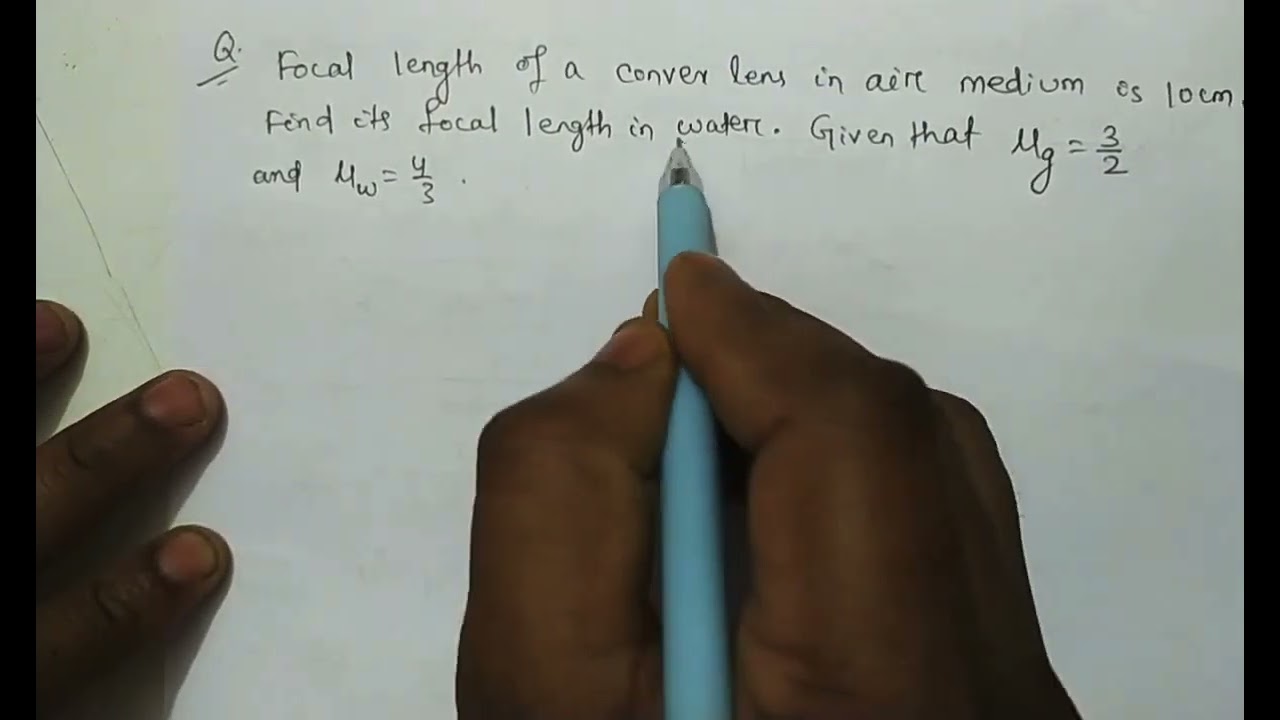 Q. Focal length of a conver lens in aire medium is 10cm.
Find its focal length in water. Given that μg = 3/2
and μw = 4/3 .